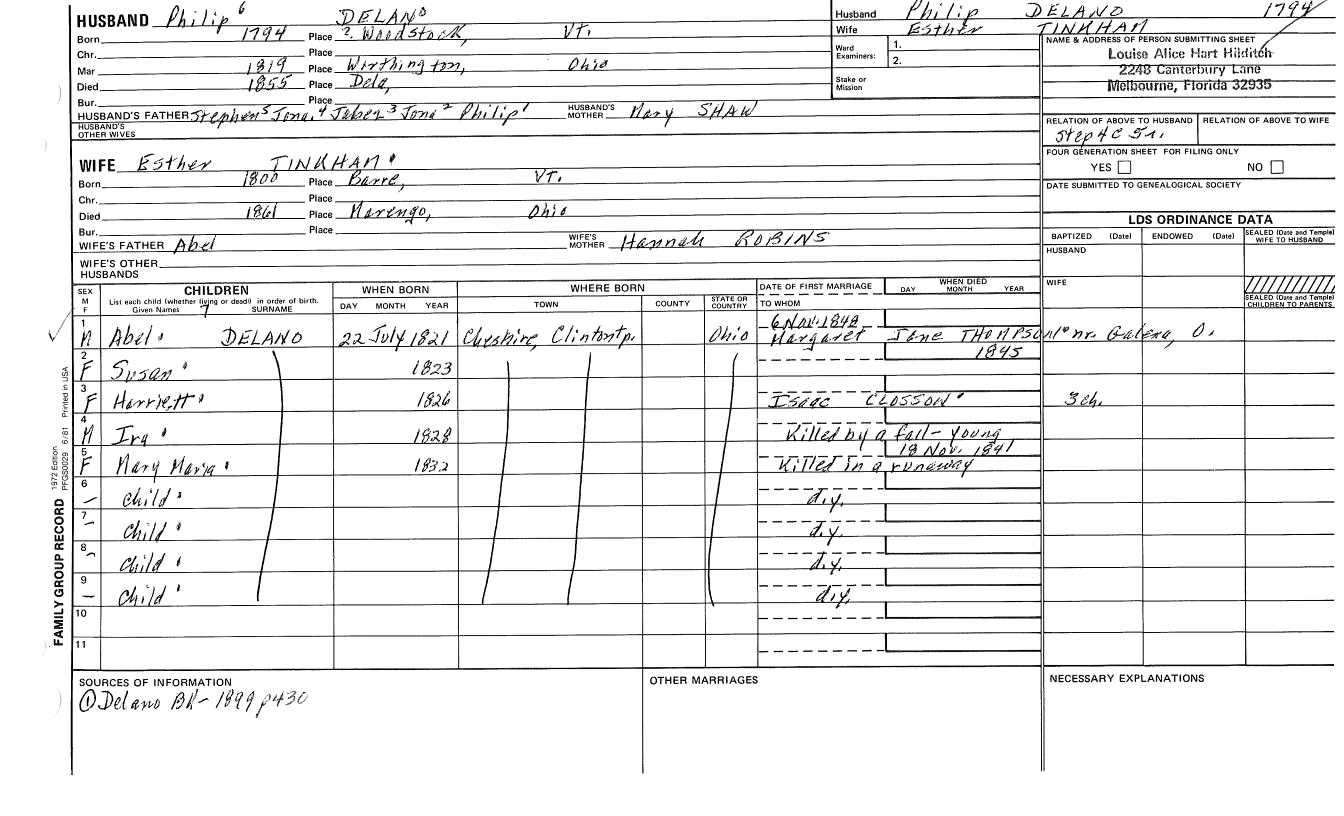 HUSBAND Philip 6 DELANO
Born 1794 Place ?. Woodstock, Vt.
Chr. Place
Mar 1819 Place Worthington, Ohio
Died 1855 Place Dela,
Bur. Place
HUSBAND'S FATHER Stephen5 Jona.4 Jabez3 Jona2 Philip1 HUSBAND'S MOTHER Mary SHAW
HUSBAND'S OTHER WIVES
WIFE Esther TINKHAM
Born 1800 Place Barre, Vt.
Chr. Place
Died 1861 Place Marengo, Ohio
Bur. Place
WIFE'S FATHER Abel WIFE'S MOTHER Hannah ROBINS
WIFE'S OTHER HUSBANDS
Husband Philip DELANO 1794
Wife Esther TINKHAM
Ward Examiners: 1.
2.
Stake or Mission
NAME & ADDRESS OF PERSON SUBMITTING SHEET
Louise Alice Hart Hilditch
2248 Canterbury Lane
Melbourne, Florida 32935
RELATION OF ABOVE TO HUSBAND RELATION OF ABOVE TO WIFE
Step 4C 5r.
FOUR GENERATION SHEET FOR FILING ONLY
YES NO
DATE SUBMITTED TO GENEALOGICAL SOCIETY
LDS ORDINANCE DATA
BAPTIZED (Date) ENDOWED (Date) SEALED (Date and Temple) WIFE TO HUSBAND
HUSBAND
WIFE
SEALED (Date and Temple) CHILDREN TO PARENTS
SEX M F CHILDREN WHEN BORN WHERE BORN DATE OF FIRST MARRIAGE WHEN DIED
List each child (whether living or dead) in order of birth. DAY MONTH YEAR TOWN COUNTY STATE OR COUNTRY TO WHOM DAY MONTH YEAR
Given Names SURNAME
1 M Abel DELANO 22 July 1821 Cheshire, Clintontp. Ohio 6 Nov. 1848
Margaret Jane THOMPSON nr. Galena, O.
2 F Susan 1823 1845
3 F Harriett 1826 Isaac CLOSSON 3 ch.
4 M Ira 1828 Killed by a fall - young
5 F Mary Maria 1832 18 Nov. 1841
Killed in a runaway
6 - Child d.y.
7 - Child d.y.
8 - Child d.y.
9 - Child d.y.
10
11
SOURCES OF INFORMATION OTHER MARRIAGES NECESSARY EXPLANATIONS
① Delano BK - 1899 p430
FAMILY GROUP RECORD 1972 Edition PFGS0029 6/81 Printed in USA